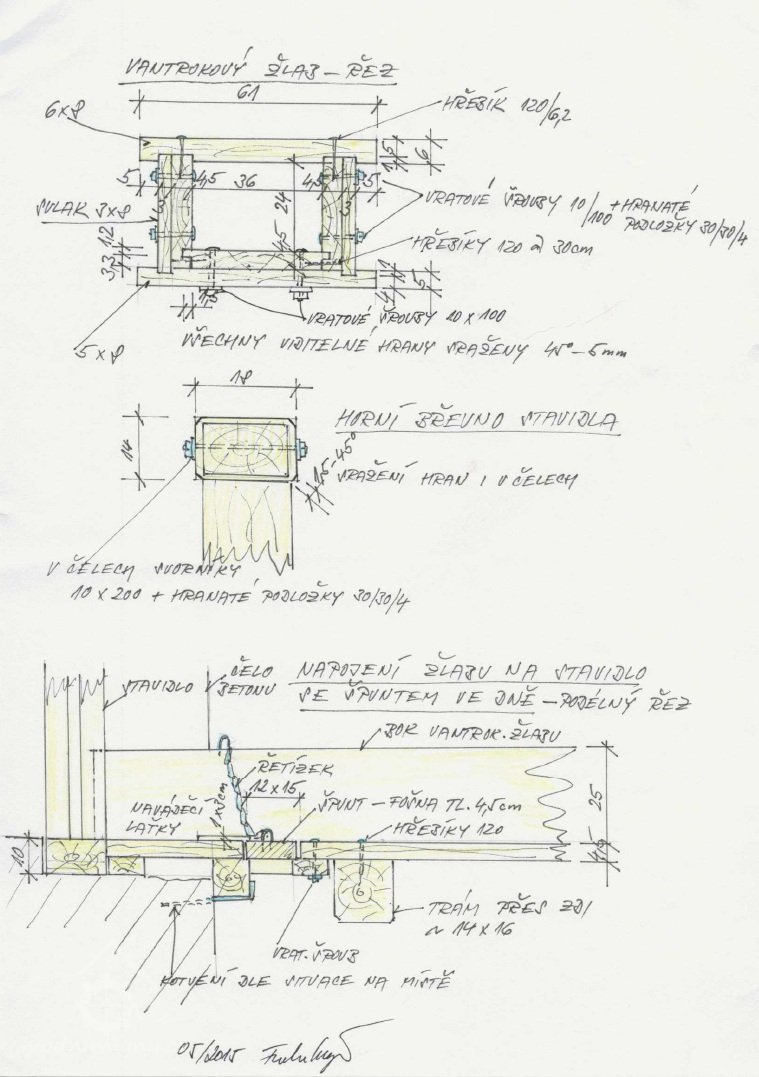 VANTROKOVÝ ŽLAB – ŘEZ
61
6x8
HŘEBÍK 120/6,2
1,5
6
5
4,5
36
4,5
3,5
3
3
24
SVLAK 3x8
VRATOVÉ ŠROUBY 10/100 + HRANATÉ
PODLOŽKY 30/30/4
12
3,3
4,5
HŘEBÍKY 120 à 30cm
1
4
5
VRATOVÉ ŠROUBY 10 x 100
5x8
VŠECHNY VIDITELNÉ HRANY SRAŽENY 45° – 5mm
18
14
HORNÍ BŘEVNO STAVIDLA
1,5–45°
SRAŽENÍ HRAN I V ČELECH
V ČELECH SVORNÍKY
10 x 200 + HRANATÉ PODLOŽKY 30/30/4
STAVIDLO
ČELO
BETONU
NAPOJENÍ ŽLABU NA STAVIDLO
SE ŠPUNTEM VE DNĚ – PODÉLNÝ ŘEZ
BOK VANTROK. ŽLABU
ŘETÍZEK
12 x 15
NAVÁDĚCÍ
LAŤKY
1x3cm
ŠPUNT – FOŠNA TL. 4,5cm
HŘEBÍKY 120
25
4,5
10
TRÁM PŘES ZDI
~ 14 x 16
VRAT. ŠROUB
KOTVENÍ DLE SITUACE NA MÍSTĚ
05/2015